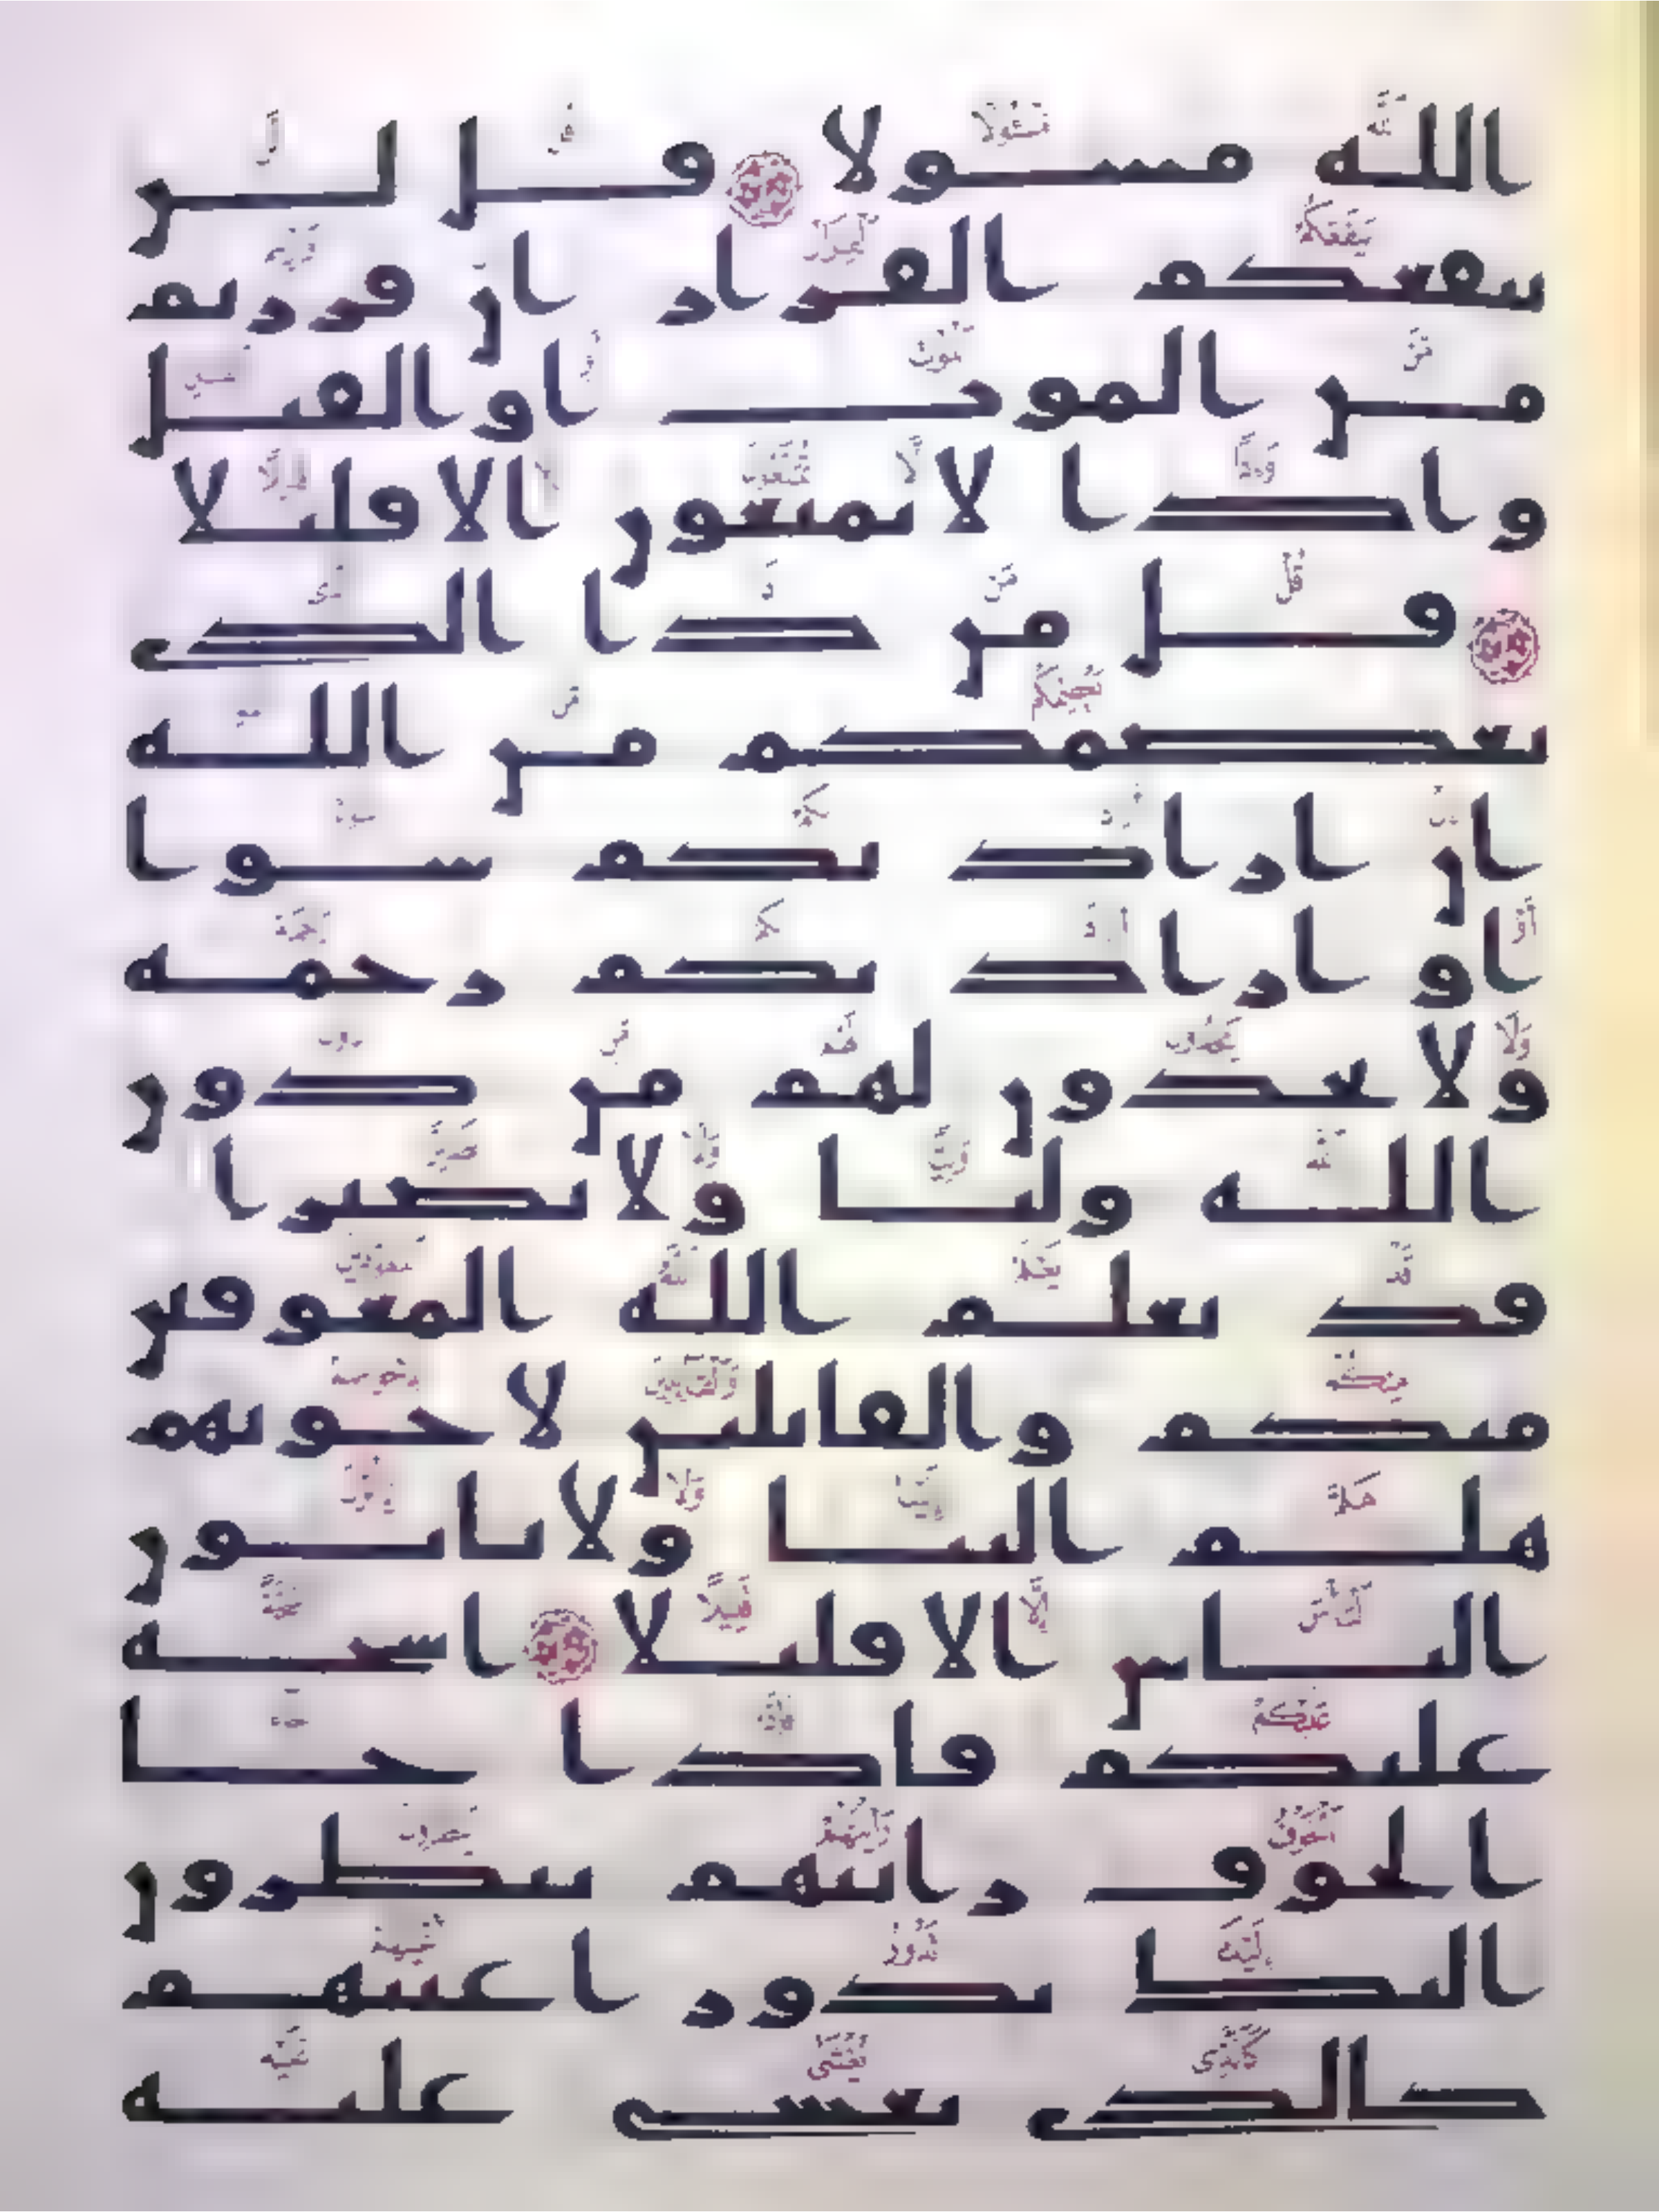 الله مسولا قل لن
ينفعكم الفرار ان فررتم
من الموت او القتل
واذا لا تمتعون الا قليلا
قل من ذا الذى
يعصمكم من الله
ان اراد بكم سوا
او اراد بكم رحمة
ولا يجدون لهم من دون
الله وليا ولا نصيرا
قد يعلم الله المعوقين
منكم والقايلين لاخونهم
هلم الينا ولا ياتون
الباس الا قليلا اشحة
عليكم فاذا جا
الخوف رايتهم ينظرون
اليك تدور اعينهم
كالذى يغشى عليه